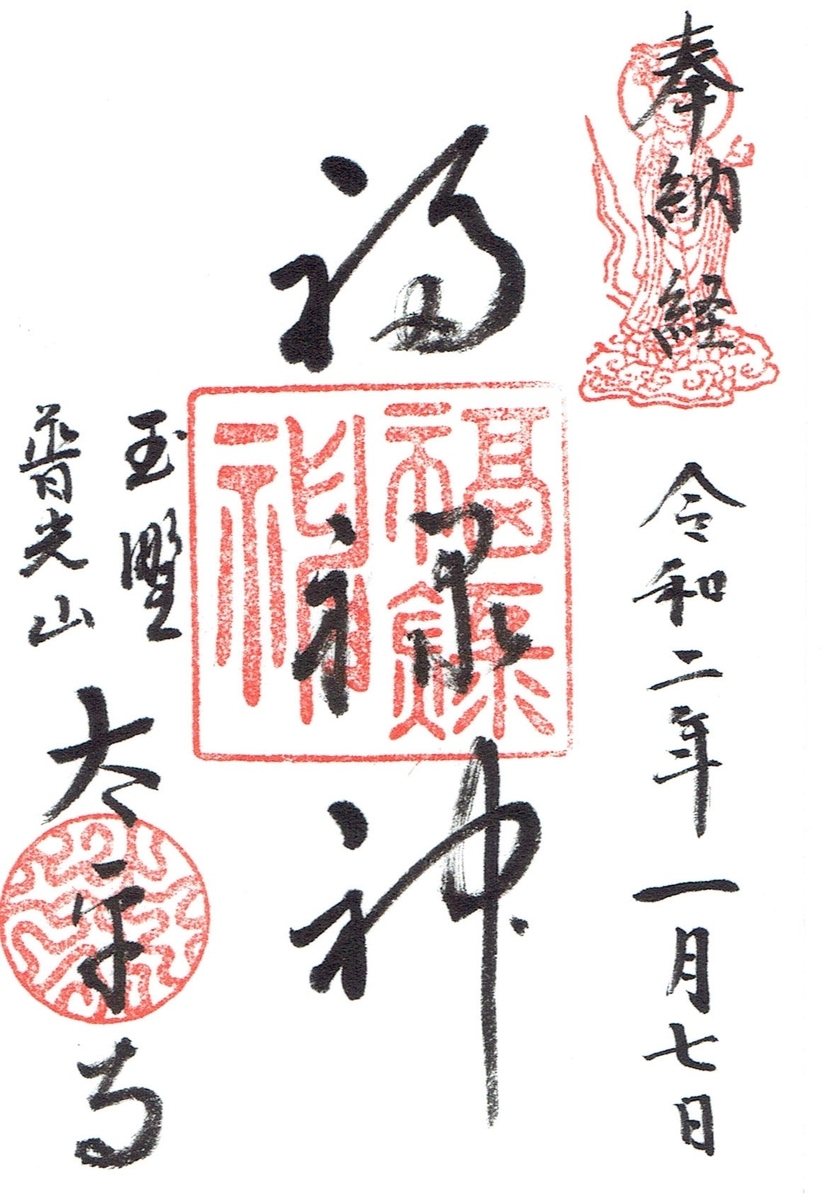 奉納経
令和二年一月七日
福禄神
福禄神
玉野
普光山
太平寺